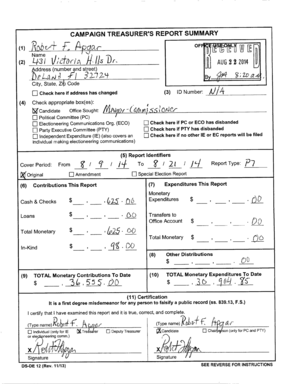 CAMPAIGN TREASURER'S REPORT SUMMARY
(1) Robert F. Apgar
Name
(2) 431 Victoria Hills Dr.
Address (number and street)
DeLand Fl 32724
City, State, Zip Code
OFFICE USE ONLY
RECEIVED
AUG 22 2014
By 8:20 a.m.
Check here if address has changed
(3) ID Number: N/A
(4) Check appropriate box(es):
Candidate Office Sought: Mayor-Commissioner
Political Committee (PC)
Electioneering Communications Org. (ECO)
Party Executive Committee (PTY)
Independent Expenditure (IE) (also covers an individual making electioneering communications)
Check here if PC or ECO has disbanded
Check here if PTY has disbanded
Check here if no other IE or EC reports will be filed
(5) Report Identifiers
Cover Period: From 8 / 9 / 14 To 8 / 21 / 14 Report Type: P7
Original Amendment Special Election Report
(6) Contributions This Report
Cash & Checks $ 625.00
Loans $ .00
Total Monetary $ 625.00
In-Kind $ 98.00
(7) Expenditures This Report
Monetary Expenditures $ .00
Transfers to Office Account $ .00
Total Monetary $ .00
(8) Other Distributions
$ .00
(9) TOTAL Monetary Contributions To Date
$ 36,555.00
(10) TOTAL Monetary Expenditures To Date
$ 30,904.85
(11) Certification
It is a first degree misdemeanor for any person to falsify a public record (ss. 839.13, F.S.)
I certify that I have examined this report and it is true, correct, and complete.
(Type name) Robert F. Apgar
Individual (only for IE or electioneering comm.) Treasurer Deputy Treasurer
X Robert F Apgar
Signature
(Type name) Robert F. Apgar
Candidate Chairperson (only for PC and PTY)
X Robert F Apgar
Signature
DS-DE 12 (Rev. 11/13)
SEE REVERSE FOR INSTRUCTIONS